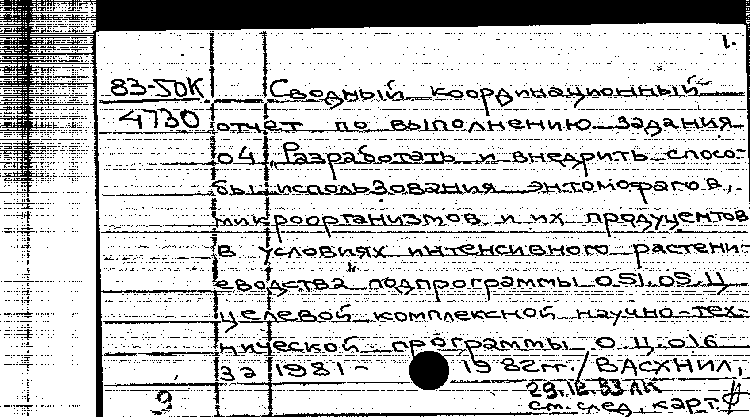 1.
83-50К Сводный координационный
4730 отчет по выполнению задания
04 „Разработать и внедрить спосо-
бы использования энтомофагов,
микроорганизмов и их продуцентов
в условиях интенсивного растени-
еводства" подпрограммы 0.51.05.Ц
целевой комплексной научно-тех-
нической программы 0.Ц.016
за 1981- 1982гг. / ВАСХНИЛ,
29.12.83 ЛК
9 ст. след. карт.